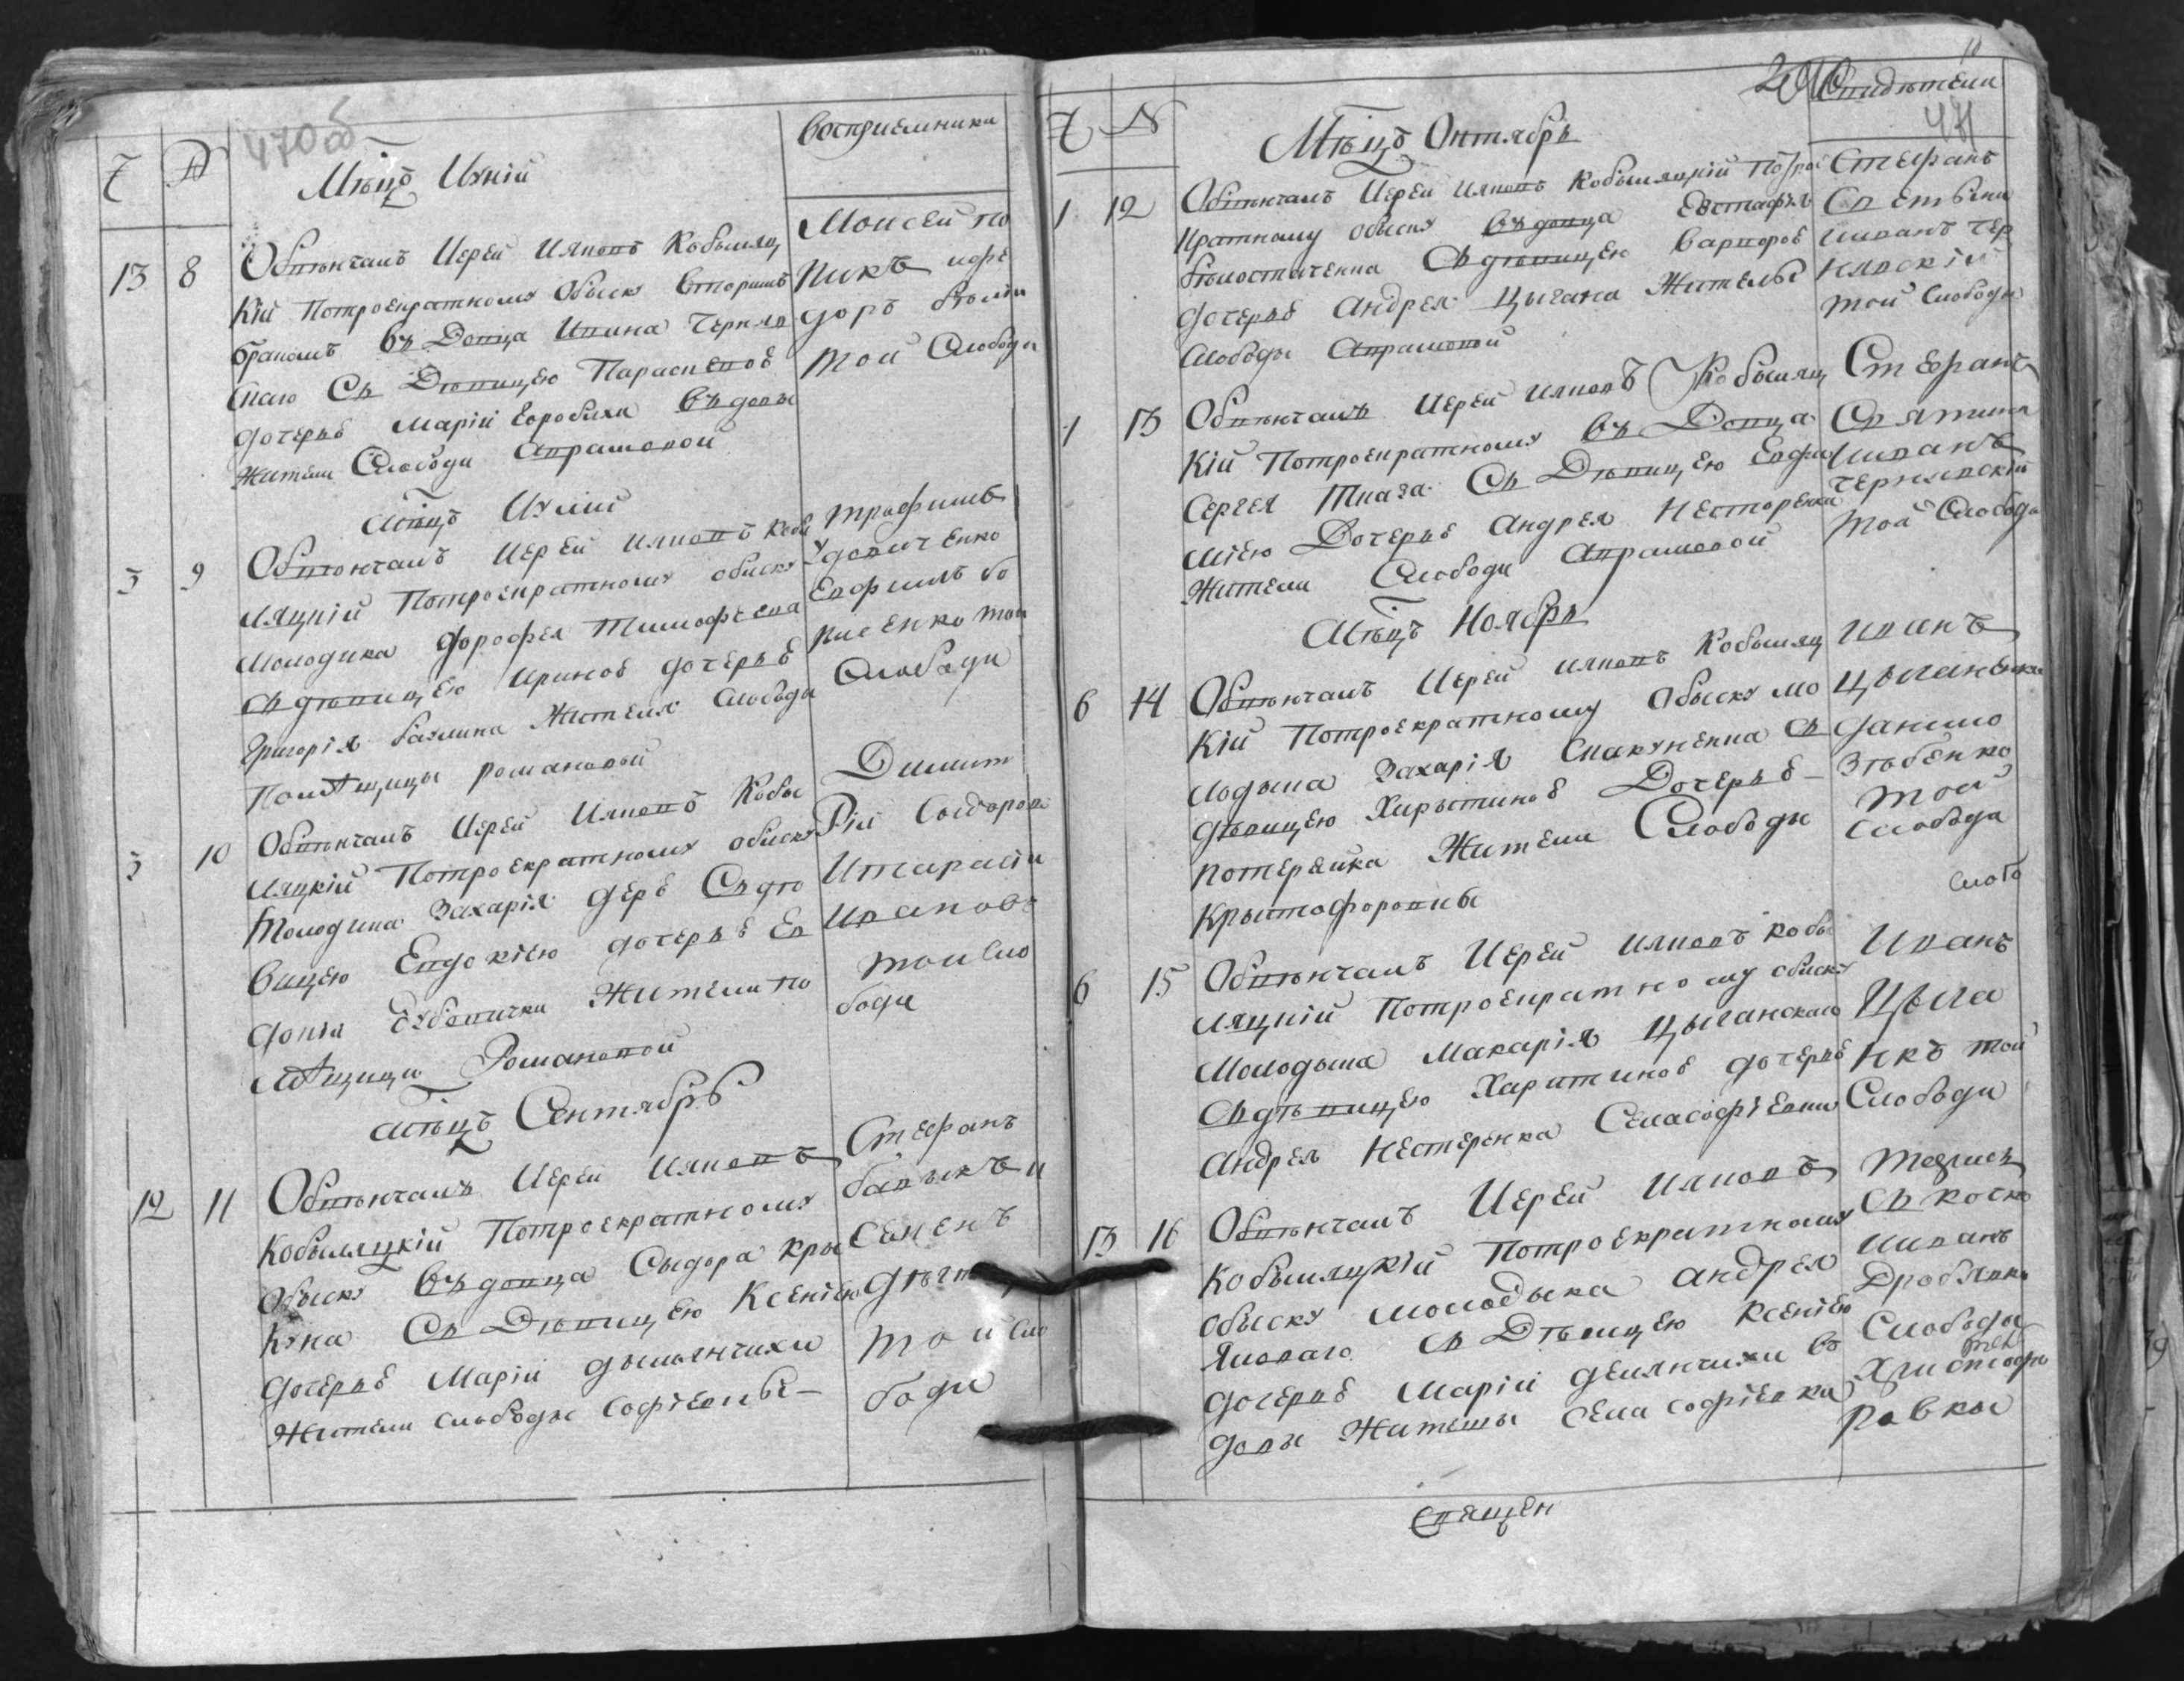 470об
Ч
№
Мѣцъ Июній
воспріемники
13 8 Обвѣнчалъ Иерей Иляковъ Кобыляц
кій потроекратному обыску вторимъ
бракомъ вдовца Ивина Черняв
скаю съ дѣвицею Парасковеѣ
дотерьѣ Маріи Коробихи вдовы
жители слободи Аврамовой
Моисей по
пикъ ифе
доръ бѣлїи
той слободи
Мѣцъ Июлій
5 9 Обвѣнчалъ Иерей Иляковъ Кобы
ляцкій потроекратному обиску
молодика Дорофея Тимофеева
съ дѣвицею Ириноѣ дотерьѣ
Григорія Бахлина жителя слободи
помѣщицы Романовой
трофимъ
Удовиченко
Евфимъ бо
рисенко той
слободи
5 10 Обвѣнчалъ Иерей Иляковъ Кобы
ляцкій потроекратному обиску
молодика Захарія дерѣ съ дѣ
вицею Евдокіею дотерьѣ Ев
докіи жители по
мѣщици Романовой
Димит
рій Сидоров
Итарасіи
Ивановъ
той сло
боди
Мѣцъ Сентябрь
12 11 Обвѣнчалъ Иерей Иляковъ
Кобыляцкій потроекратному
обыску вдовца Сыдора Кры
куна съ дѣвицею Ксеніею
дотерьѣ Маріи дымянчихи
жители слободы Софіевны
Стефанъ
бавыкъ и
Семенъ
той сло
боди
Ч
№
Мѣцъ Октябрь
Свидѣтели
471
1 12 Обвѣнчалъ Иерей Иляковъ Кобыляцкій потрое
кратному обыску вдовца Евстафія
бѣлостаченка съ дѣвицею Варвороѣ
дотерьѣ Андрея Цыгана жителы
слободы Аврамовой
Стефанъ
Иванъ Чер
нявскій
той слободи
1 13 Обвѣнчалъ Иерей Иляковъ Кобыляц
кій потроекратному вдовца
Сергея Ткача съ дѣвицею Евфи
міею дотерьѣ Андрея Несторенка
жители слободи Аврамовой
Стефанъ
Иванъ
Чернявскій
той слободи
Мѣцъ Ноябрь
6 14 Обвѣнчалъ Иерей Иляковъ Кобыляц
кій потроекратному обыску мо
лодыка Захарія Скакуненка съ
дѣвицею Хырыстиноѣ дотерьѣ
потеряйка жители слободы
Крыштофоровны
Иванъ
Цыганенко
Данило
Зѣбенко
той
слободи
слобо
6 15 Обвѣнчалъ Иерей Иляковъ Кобы
ляцкій потроекратному обиску
молодыка Макарія Цыганскаго
съ дѣвицею Харитиноѣ дотерьѣ
Андрея Нестеренка села Софіевки
Иванъ
Цыга
нкъ той
слободи
13 16 Обвѣнчалъ Иерей Иляковъ
Кобыляцкій потроекратному
обыску молодыка Андрея
Яковаго съ дѣвицею Ксеніею
дотерьѣ Маріи демянчихи в
довы жителы села Софіевки
Иванъ
Дробязко
слободи
Христофо
ровкы
Священ